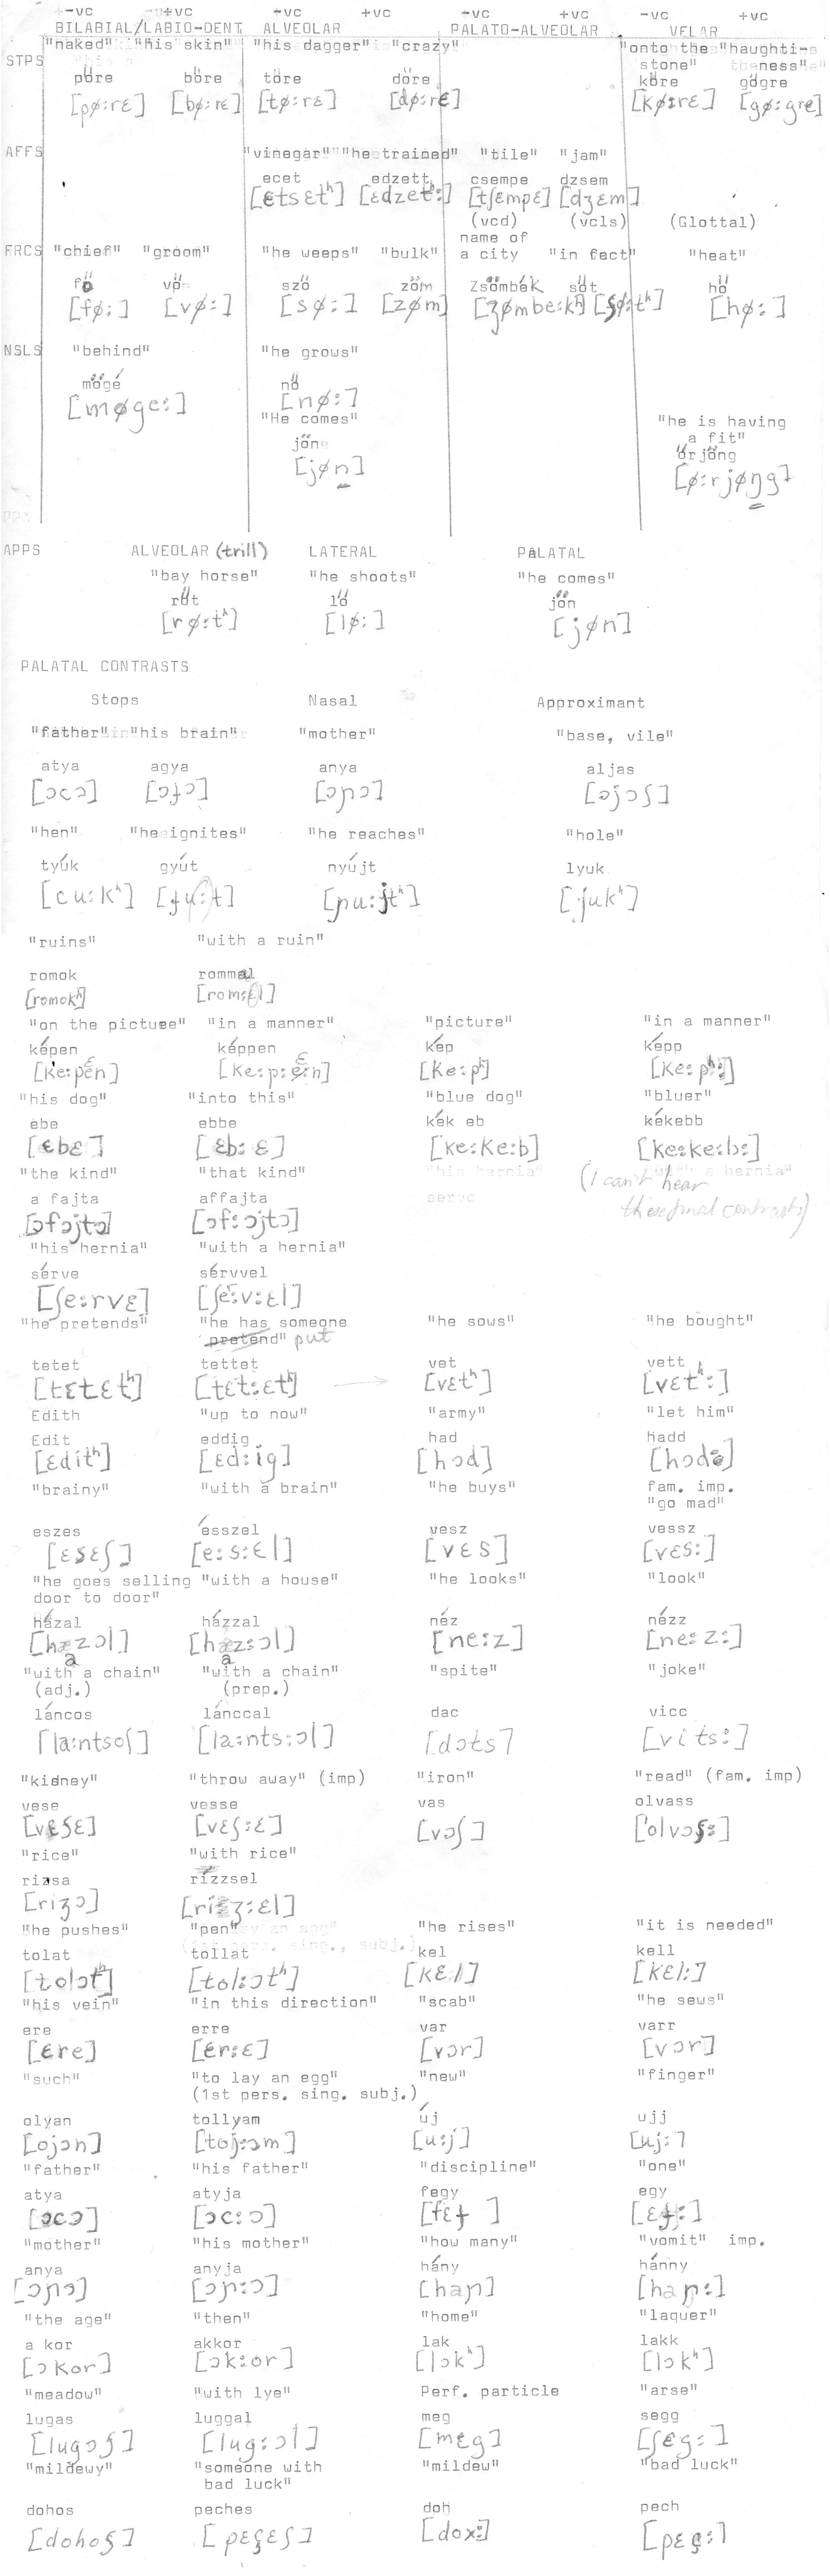 -vc +vc +vc +vc +vc +vc -vc +vc
BILABIAL/LABIO-DENT ALVEOLAR PALATO-ALVEOLAR VELAR
"naked" "his skin" "his dagger" "crazy" "onto the "haughti-
STPS stone" ness"
pőre bőre tőre dőre kőre gőgre
[pø:rɛ] [bø:rɛ] [tø:rɛ] [dø:rɛ] [kø:rɛ] [gø:gre]
AFFS "vinegar" "he trained" "tile" "jam"
ecet edzett csempe dzsem
[ɛtsɛtʰ] [ɛdzetʰ:] [tʃɛmpɛ] [dʒɛm]
(vcd) (vcls) (Glottal)
name of
FRCS "chief" "groom" "he weeps" "bulk" a city "in fact" "heat"
fő vő sző zöm Zsömbék sőt hő
[fø:] [vø:] [sø:] [zøm] [ʒømbe:kʰ] [ʃø:tʰ] [hø:]
NSLS "behind" "he grows"
mögé nő
[møge:] [nø:]
"He comes" "he is having
jön a fit"
[jøn] őrjöng
[ø:rjøŋg]
APPS ALVEOLAR (trill) LATERAL PALATAL
"bay horse" "he shoots" "he comes"
rőt lő jön
[rø:tʰ] [lø:] [jøn]
PALATAL CONTRASTS
Stops Nasal Approximant
"father" "his brain" "mother" "base, vile"
atya agya anya aljas
[ɔcɔ] [ɔɟɔ] [ɔɲɔ] [ɔjɔʃ]
"hen" "he ignites" "he reaches" "hole"
tyúk gyút nyújt lyuk
[cu:kʰ] [ɟu:t] [ɲu:jtʰ] [jukʰ]
"ruins" "with a ruin"
romok rommal
[romokʰ] [rom:ɛl]
"on the picture" "in a manner" "picture" "in a manner"
képen képpen kép képp
[ke:pɛn] [ke:p:ɛn] [ke:pʰ] [ke:pʰ:]
"his dog" "into this" "blue dog" "bluer"
ebe ebbe kék eb kékebb
[ɛbɛ] [ɛb:ɛ] [ke:ke:b] [ke:ke:b:]
"the kind" "that kind" (I can't hear
a fajta affajta these final contrasts)
[ɔfɔjtɔ] [ɔf:ɔjtɔ]
"his hernia" "with a hernia"
sérve sérvvel
[ʃe:rvɛ] [ʃe:v:ɛl]
"he pretends" "he has someone "he sows" "he bought"
pretend" put
tetet tettet vet vett
[tɛtɛtʰ] [tɛt:ɛtʰ] → [vɛtʰ] [vɛtʰ:]
Edith "up to now" "army" "let him"
Edit eddig had hadd
[ɛditʰ] [ɛd:ig] [hɔd] [hɔd:]
"brainy" "with a brain" "he buys" fam. imp.
"go mad"
eszes ésszel vesz vessz
[ɛsɛʃ] [e:s:ɛl] [vɛs] [vɛs:]
"he goes selling "with a house" "he looks" "look"
door to door"
házal házzal néz nézz
[hæzɔl] [hæz:ɔl] [ne:z] [ne:z:]
a a
"with a chain" "with a chain" "spite" "joke"
(adj.) (prep.)
láncos lánccal dac vicc
[la:ntsoʃ] [la:nts:ɔl] [dɔts] [vits:]
"kidney" "throw away" (imp) "iron" "read" (fam. imp)
vese vesse vas olvass
[vɛʃɛ] [vɛʃ:ɛ] [vɔʃ] [olvɔʃ:]
"rice" "with rice"
rizsa rizzsel
[riʒɔ] [riʒ:ɛl]
"he pushes" "pen" "he rises" "it is needed"
tolat tollat kel kell
[tolɔtʰ] [tol:ɔtʰ] [kɛl] [kɛl:]
"his vein" "in this direction" "scab" "he sews"
ere erre var varr
[ɛre] [ɛr:ɛ] [vɔr] [vɔr]
"such" "to lay an egg" "new" "finger"
(1st pers. sing. subj.)
olyan tollyam új ujj
[ojɔn] [toj:ɔm] [u:j] [uj:]
"father" "his father" "discipline" "one"
atya atyja fegy egy
[ɔcɔ] [ɔc:ɔ] [fɛɟ] [ɛɟ:]
"mother" "his mother" "how many" "vomit" imp.
anya anyja hány hánny
[ɔɲɔ] [ɔɲ:ɔ] [haɲ] [haɲ:]
"the age" "then" "home" "laquer"
a kor akkor lak lakk
[ɔkor] [ɔk:or] [lɔkʰ] [lɔkʰ]
"meadow" "with lye" Perf. particle "arse"
lugas luggal meg segg
[lugɔʃ] [lug:ɔl] [mɛg] [ʃɛg:]
"mildewy" "someone with "mildew" "bad luck"
bad luck"
dohos peches doh pech
[dohoʃ] [pɛçɛʃ] [dox:] [pɛç:]